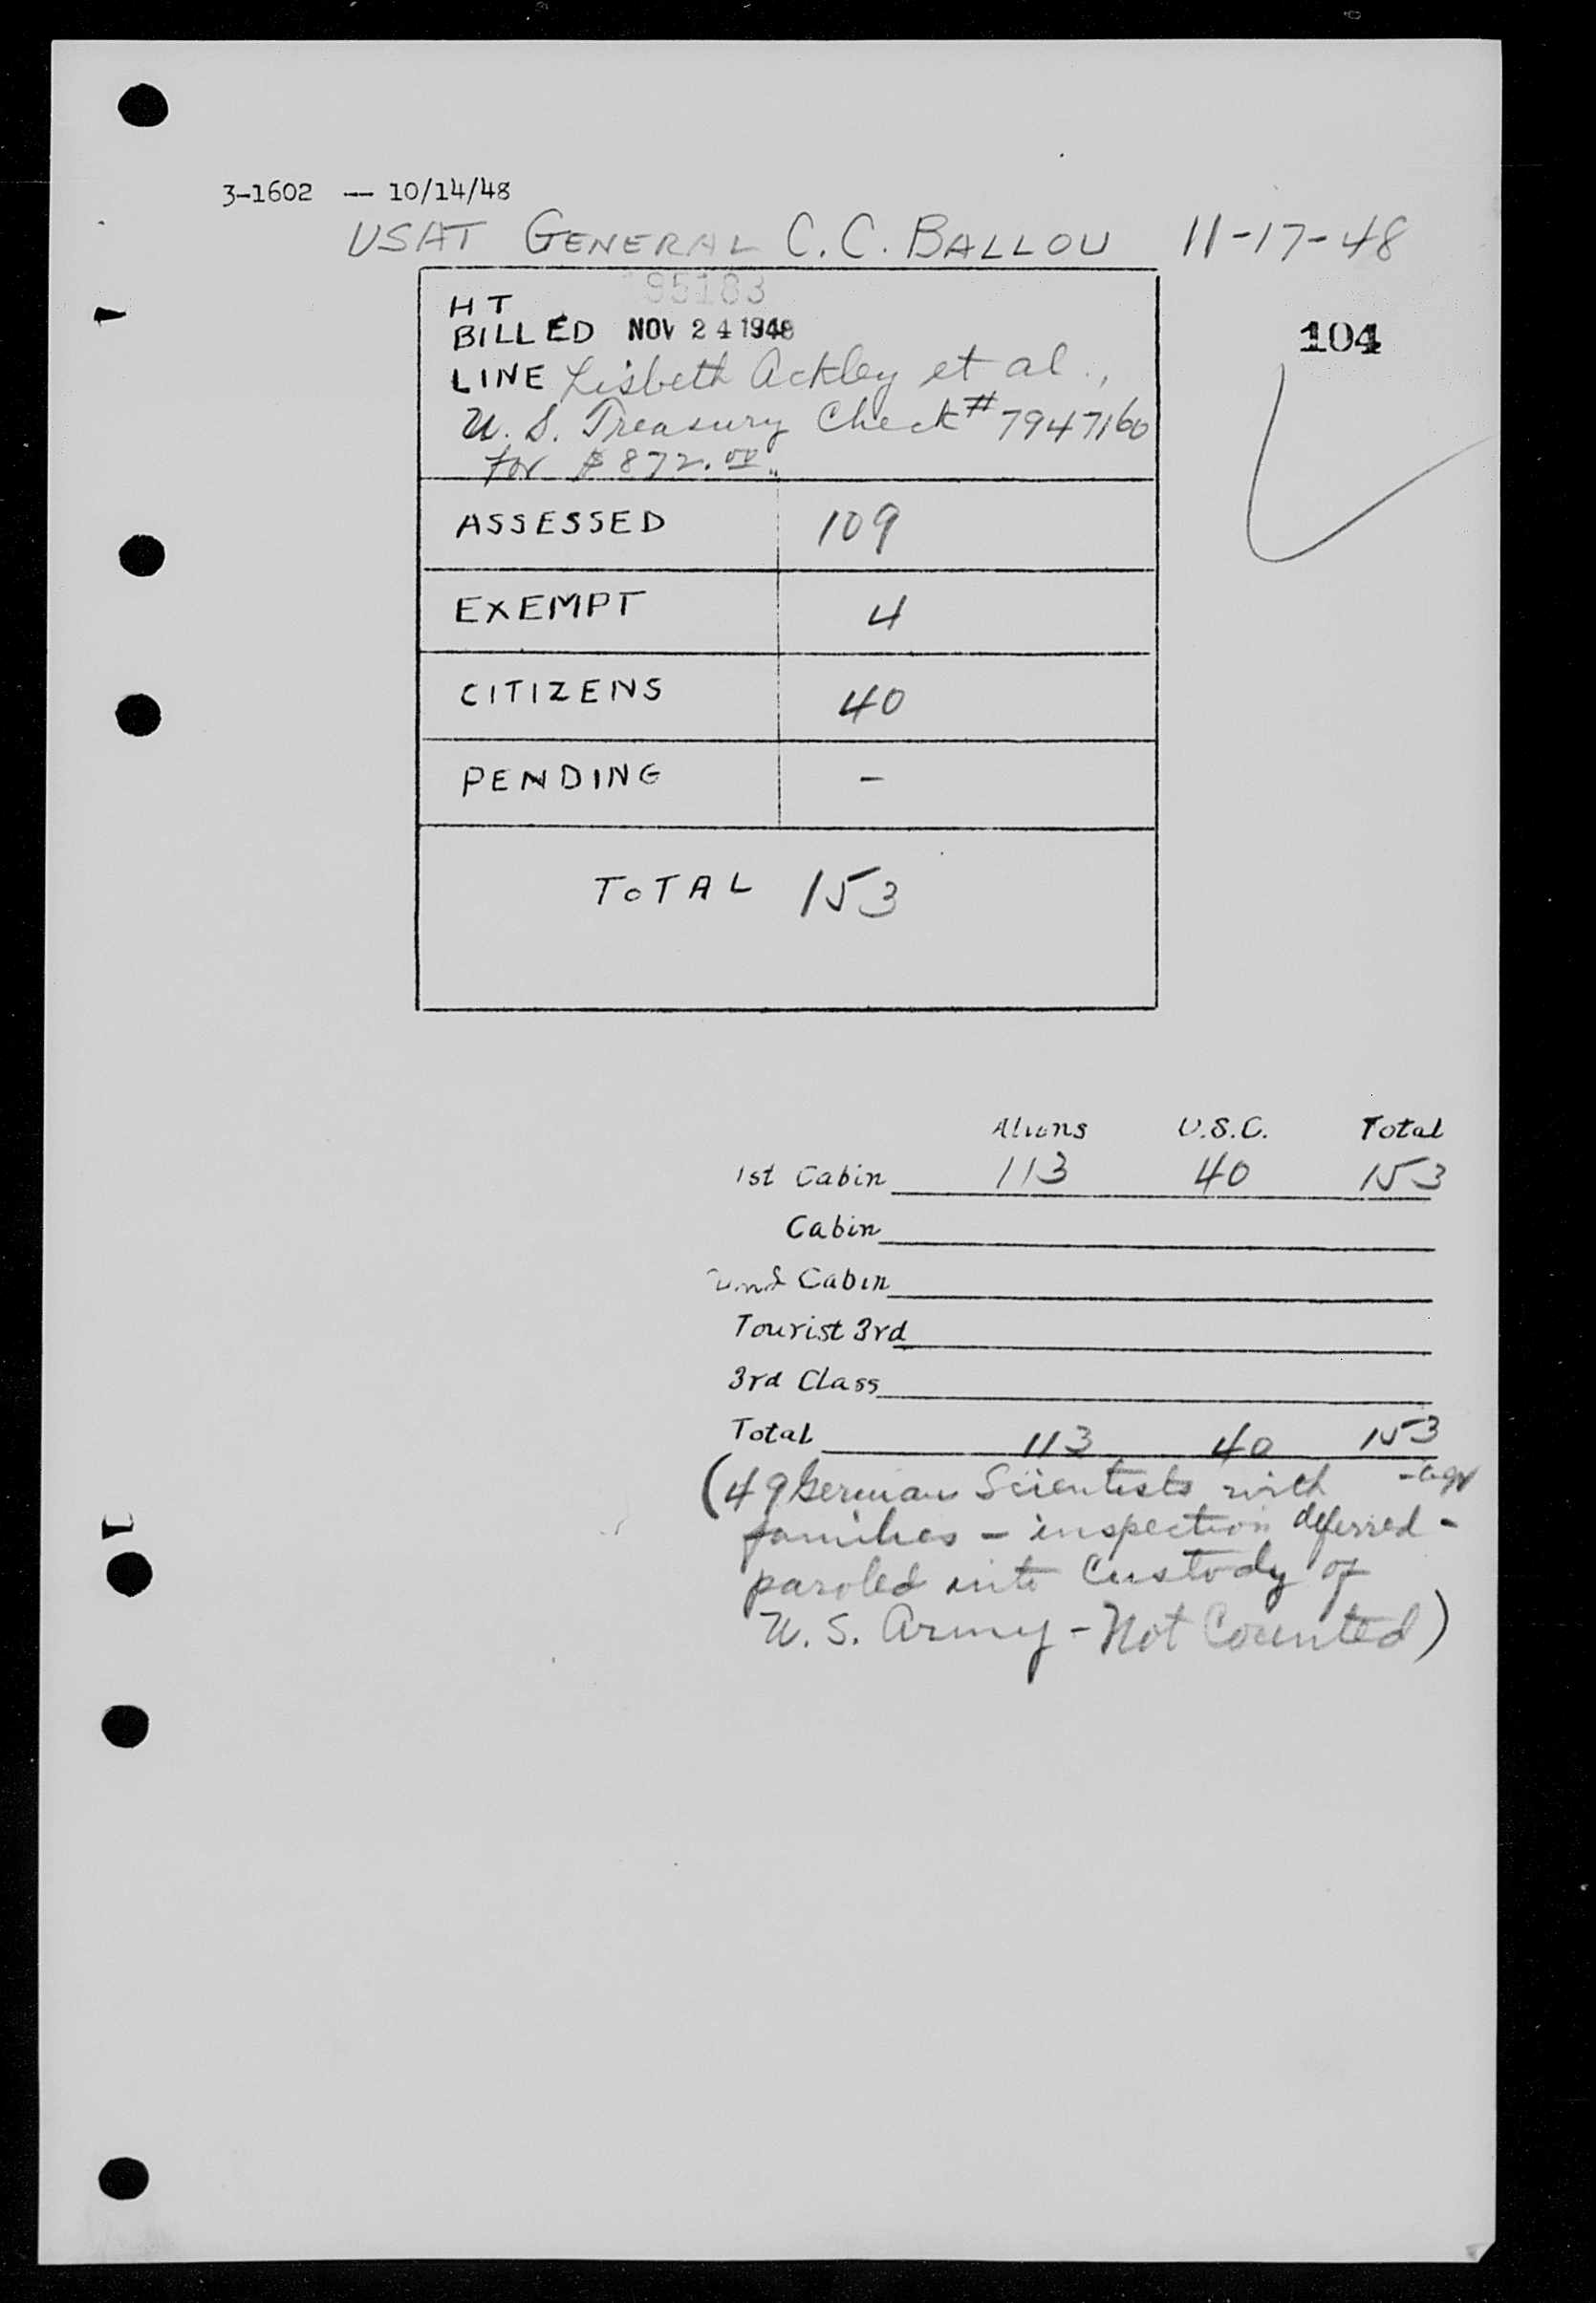 3-1602 — 10/14/48
USAT GENERAL C. C. BALLOU 11-17-48
95183
HT
BILLED NOV 24 1948
104
LINE Lisbeth Ackley et al.,
U. S. Treasury Check # 7947160
for $872.00
ASSESSED 109
EXEMPT 4
CITIZENS 40
PENDING -
TOTAL 153
Aliens U.S.C. Total
1st Cabin 113 40 153
Cabin
2nd Cabin
Tourist 3rd
3rd Class
Total 113 40 153
(49 German Scientists with
families - inspection deferred -
paroled into Custody of
U. S. Army - Not Counted)